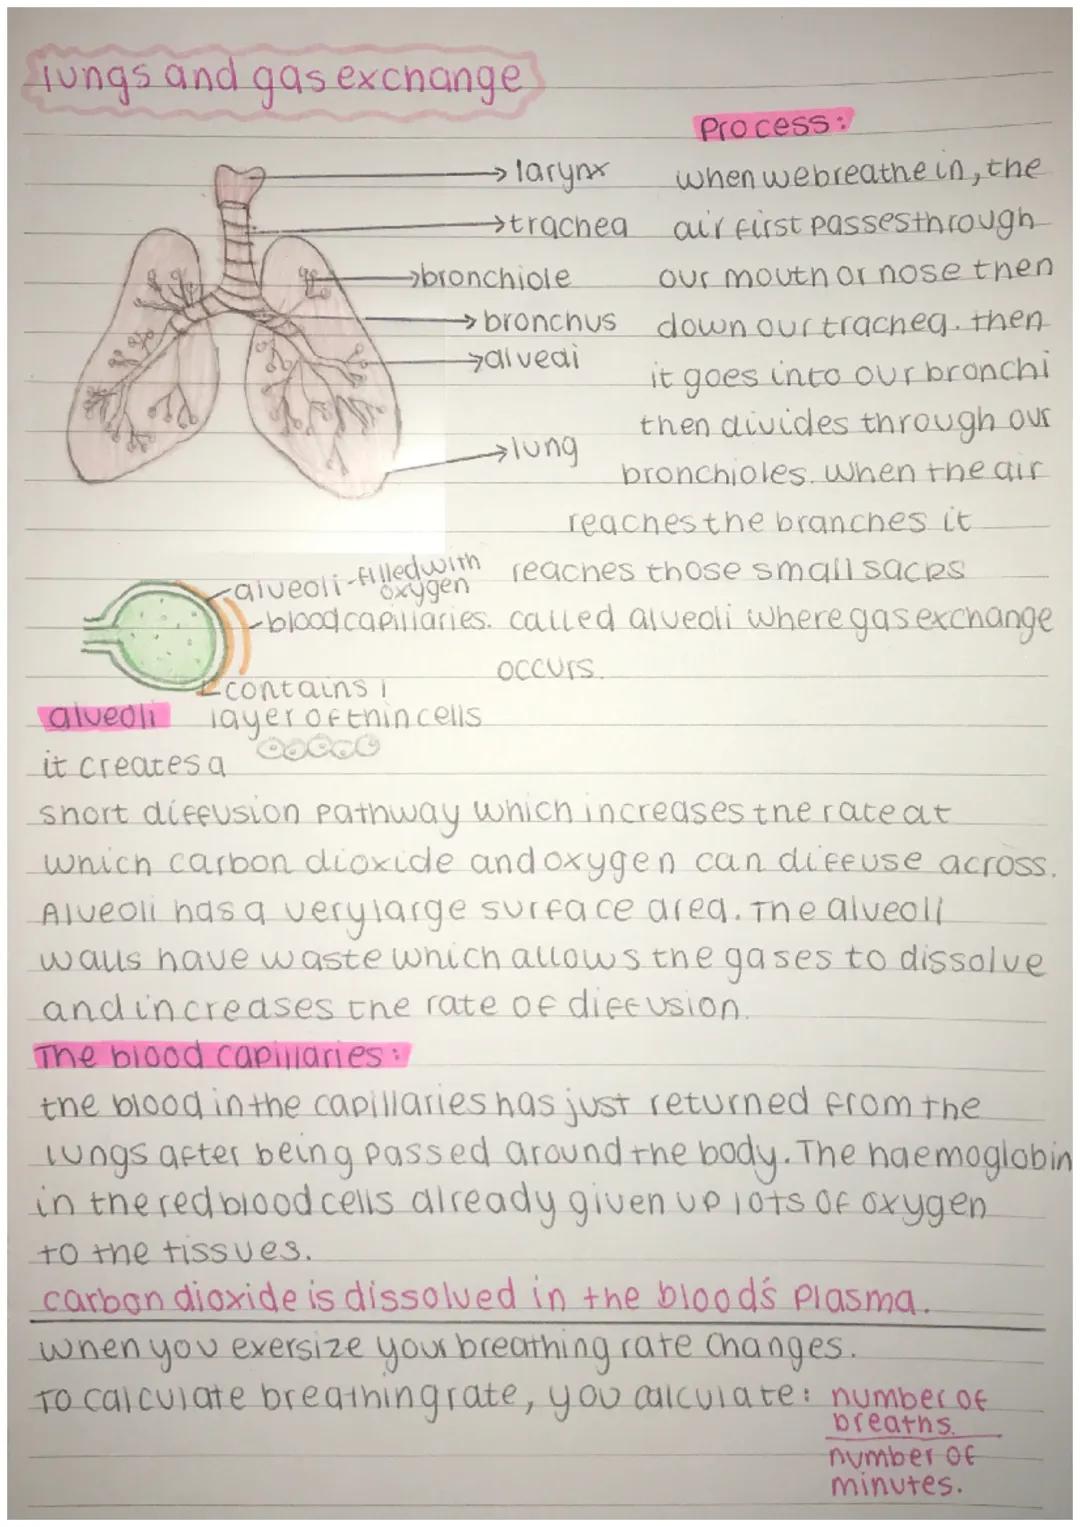 lungs and gas exchange
Process:
larynx
trachea
bronchiole
bronchus
alveoli
lung
when we breathe in, the
air first passes through
our mouth or nose then
down our trachea. then
it goes into our bronchi
then divides through our
bronchioles. When the air
reaches the branches it
reaches those small sacks
called alveoli where gas exchange
occurs.
alveoli - filled with
oxygen
blood capillaries.
contains 1
layer of thin cells
alveoli
it creates a
short diffusion pathway which increases the rate at
which carbon dioxide and oxygen can diffuse across.
Alveoli has a very large surface area. The alveoli
walls have waste which allows the gases to dissolve
and increases the rate of diffusion.
The blood capillaries:
the blood in the capillaries has just returned from the
lungs after being passed around the body. The haemoglobin
in the red blood cells already given up lots of oxygen
to the tissues.
carbon dioxide is dissolved in the blood's plasma.
when you exersize your breathing rate changes.
To calculate breathing rate, you calculate: number of
breaths.
number of
minutes.